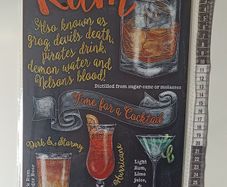 Rum
Also known as
grog, devils death,
pirates drink,
demon water and
Nelsons blood!
Distilled from sugar-cane or molasses
Time for a Cocktail
Dark & Stormy
Hurricane
Light
Rum,
Lime
juice,